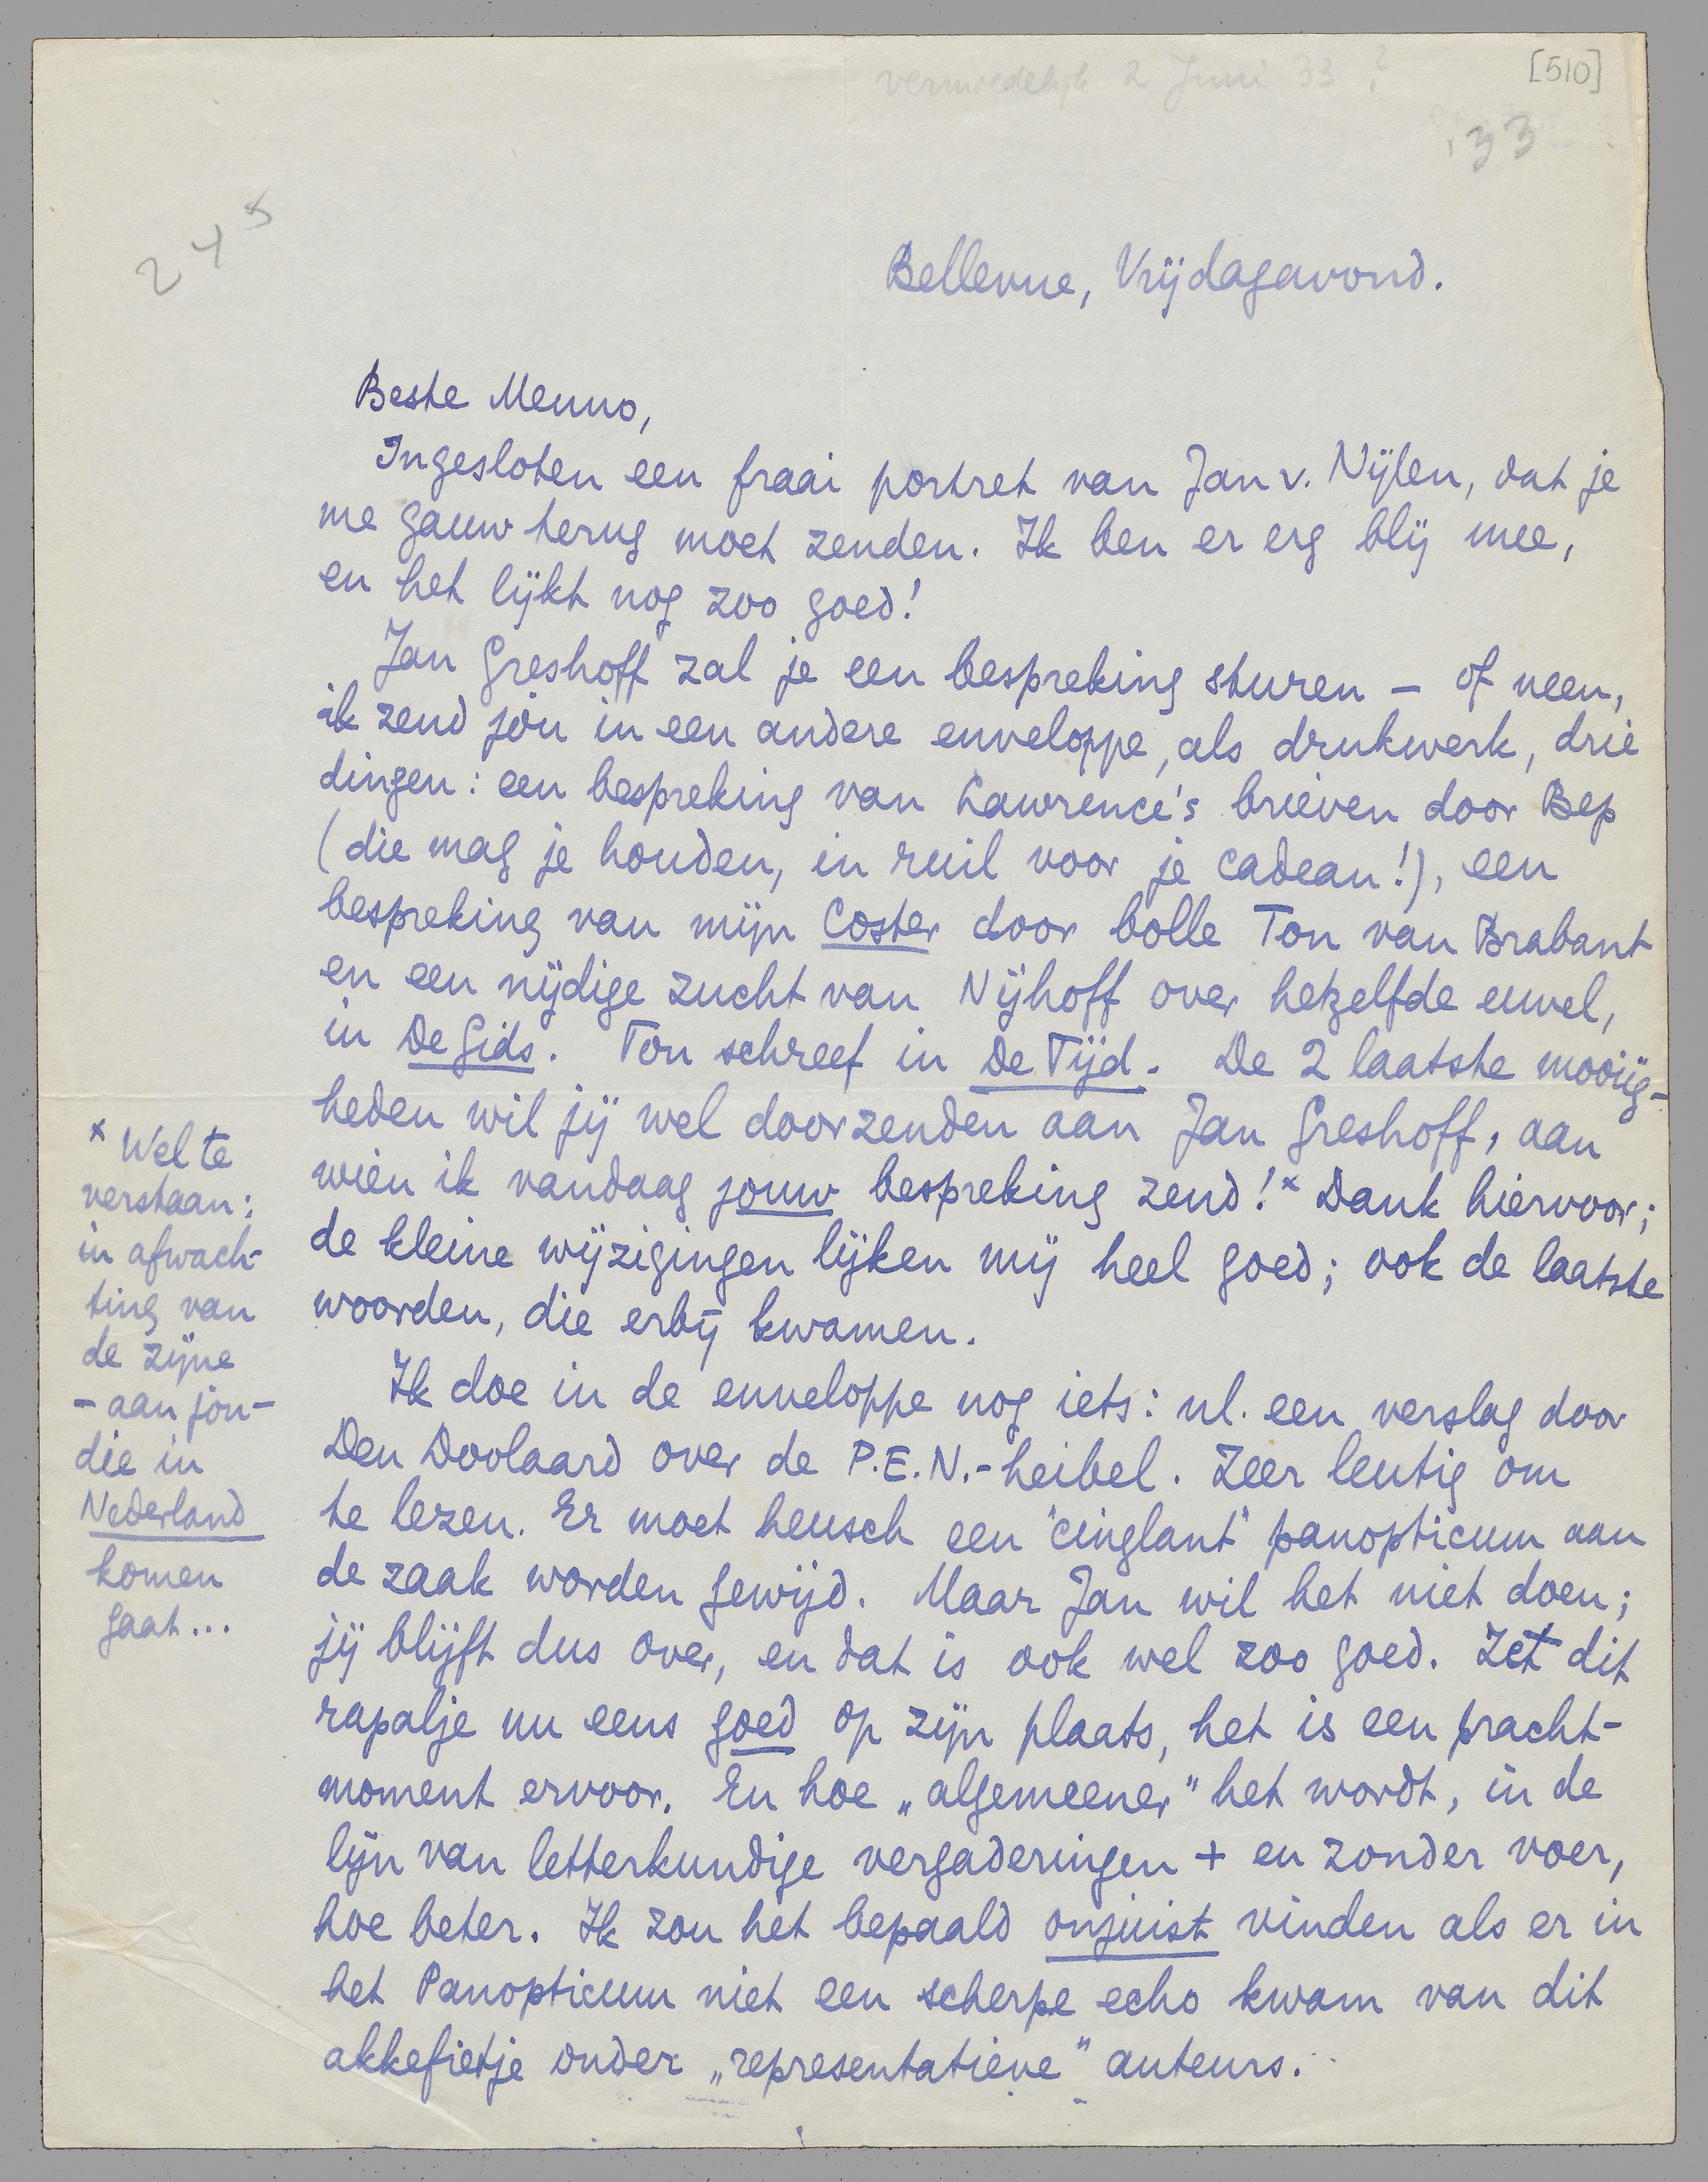 vermoedelijk 2 Juni 33?
[510]
'33
245
Bellevue, Vrijdagavond.
Beste Menno,
Ingesloten een fraai portret van Jan v. Nijlen, dat je
me gauw terug moet zenden. Ik ben er erg blij mee,
en het lijkt nog zoo goed!
Jan Greshoff zal je een bespreking sturen – of neen,
ik zend jòu in een andere enveloppe, als drukwerk, drie
dingen: een bespreking van Lawrence's brieven door Bep
(die mag je houden, in ruil voor je cadeau!), een
bespreking van mijn Coster door bolle Ton van Brabant
en een nijdige zucht van Nijhoff over hetzelfde euvel,
in De Gids. Ton schreef in De Tijd. De 2 laatste mooiig-
heden wil jij wel doorzenden aan Jan Greshoff, aan
wien ik vandaag jouw bespreking zend!x Dank hiervoor;
de kleine wijzigingen lijken mij heel goed; ook de laatste
woorden, die erbij kwamen.
Ik doe in de enveloppe nog iets: nl. een verslag door
Den Doolaard over de P.E.N.-heibel. Zeer leutig om
te lezen. Er moet heusch een 'cinglant' panopticum aan
de zaak worden gewijd. Maar Jan wil het niet doen;
jij blijft dus over, en dat is ook wel zoo goed. Zet dit
rapalje nu eens goed op zijn plaats, het is een pracht-
moment ervoor. En hoe „algemeener" het wordt, in de
lijn van letterkundige vergaderingen + en zonder voer,
hoe beter. Ik zou het bepaald onjuist vinden als er in
het Panopticum niet een scherpe echo kwam van dit
akkefietje onder „representatieve" auteurs.
x Wel te
verstaan:
in afwach-
ting van
de zijne
– aan jòu –
die in
Nederland
komen
gaat...